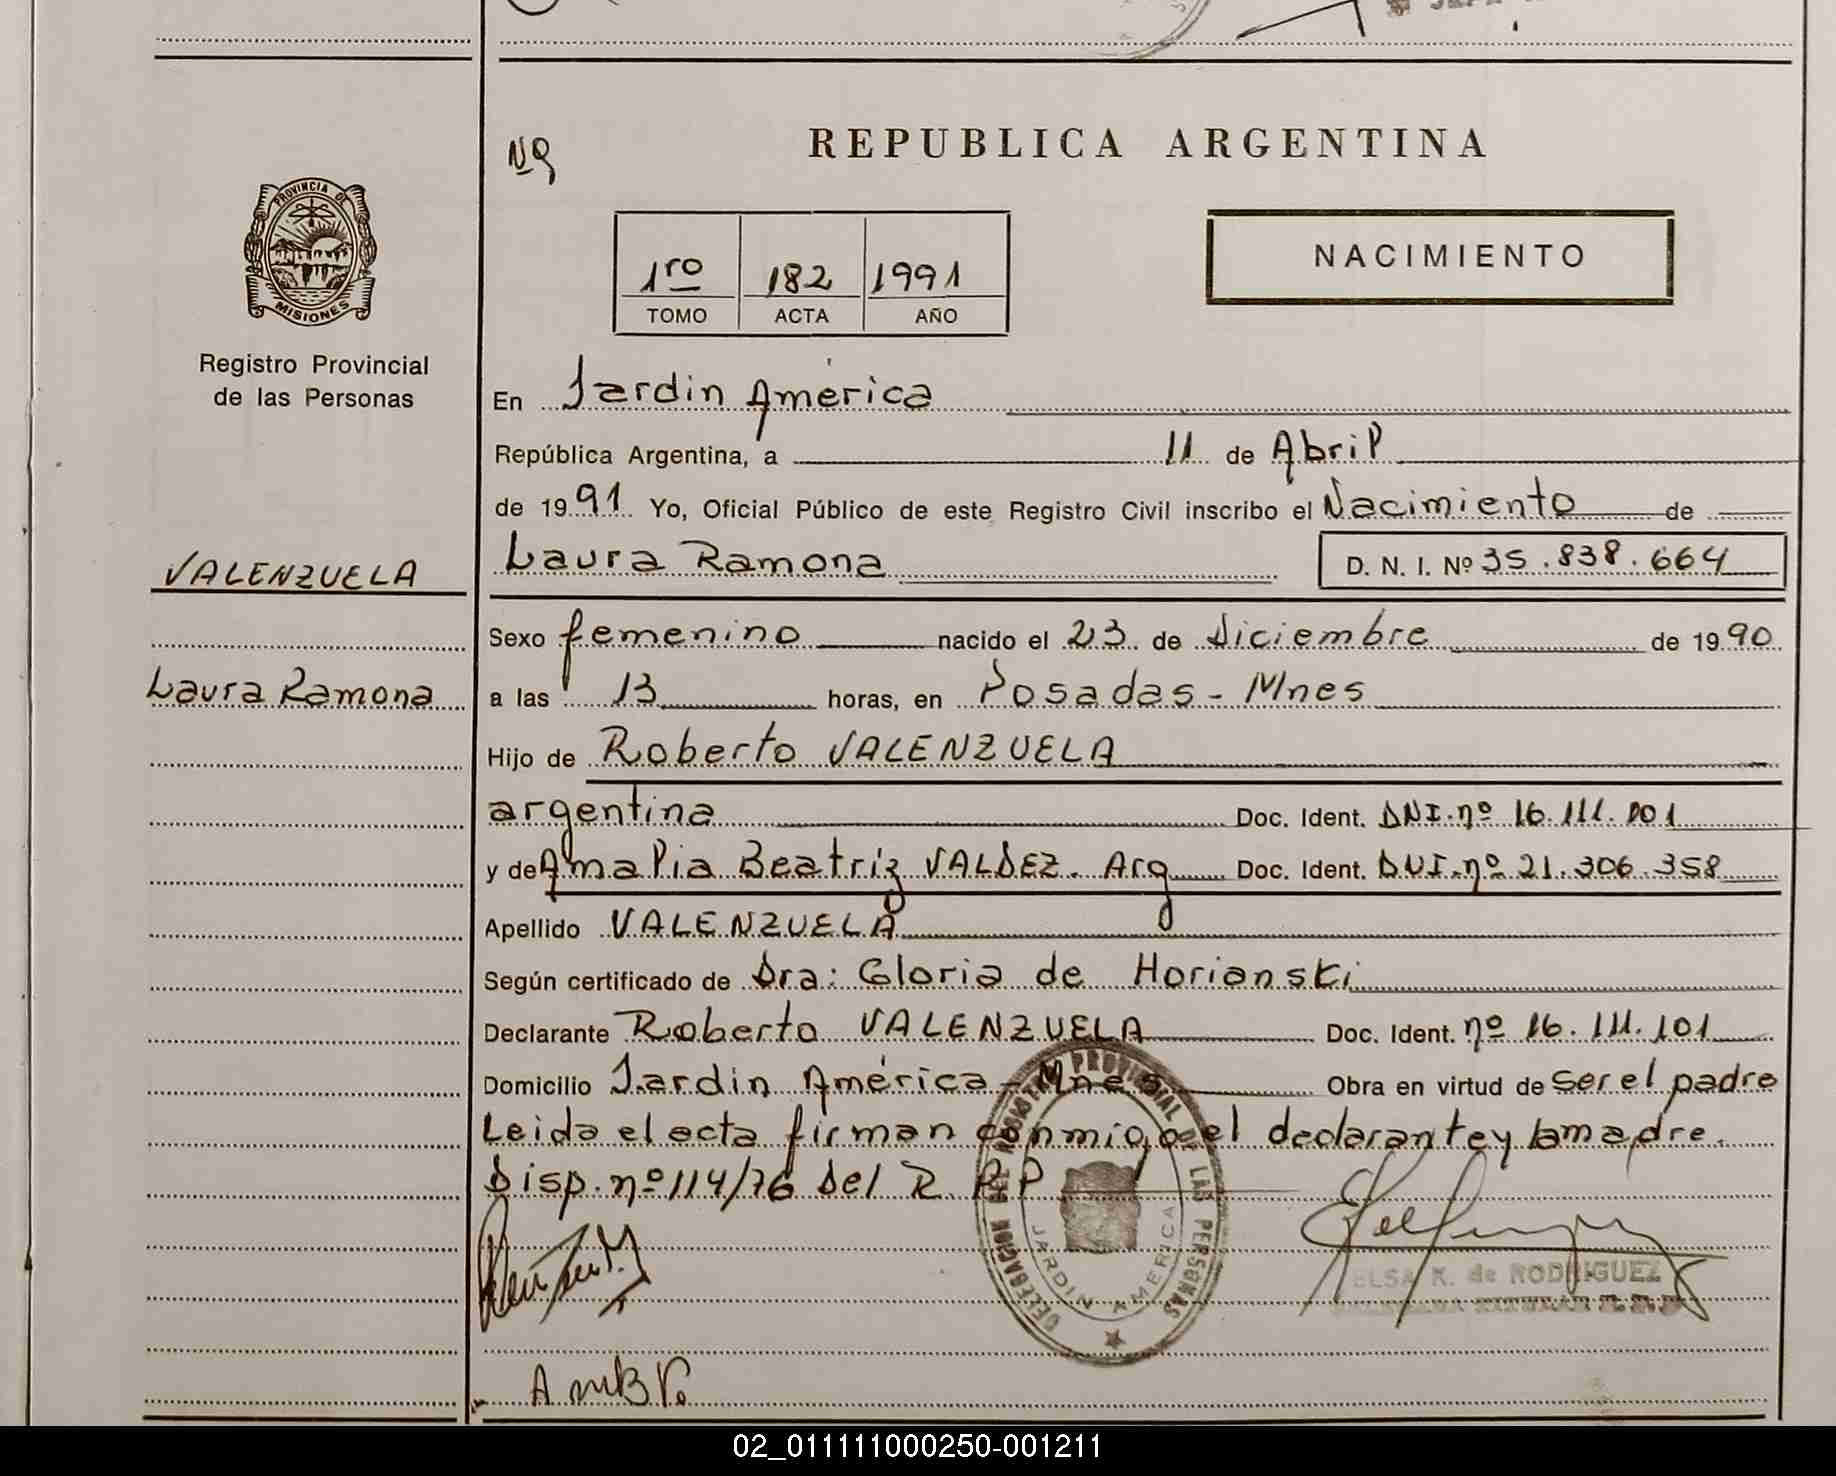 Nº
REPUBLICA ARGENTINA
PROVINCIA DE
MISIONES
1ro 182 1991
TOMO ACTA AÑO
NACIMIENTO
Registro Provincial
de las Personas
En Jardin América
República Argentina, a 11 de Abril
de 1991 Yo, Oficial Público de este Registro Civil inscribo el Nacimiento de
Laura Ramona D. N. I. Nº 35.838.664
VALENZUELA
Laura Ramona
Sexo femenino nacido el 23 de Diciembre de 1990
a las 13 horas, en Posadas - Mnes
Hijo de Roberto VALENZUELA
argentina Doc. Ident. DNI.nº 16.111.101
y de Amalia Beatriz VALDEZ. Arg Doc. Ident. DNI.nº 21.306.358
Apellido VALENZUELA
Según certificado de Dra: Gloria de Horianski
Declarante Roberto VALENZUELA Doc. Ident. nº 16.111.101
Domicilio Jardin América - Mnes Obra en virtud de ser el padre
Leida el acta firman conmigo el declarante y la madre.
Disp. nº 114/76 Del R. P. P
DELEGACION DEL REGISTRO PROVINCIAL DE LAS PERSONAS
JARDIN AMERICA
ELSA R. de RODRIGUEZ
02_011111000250-001211